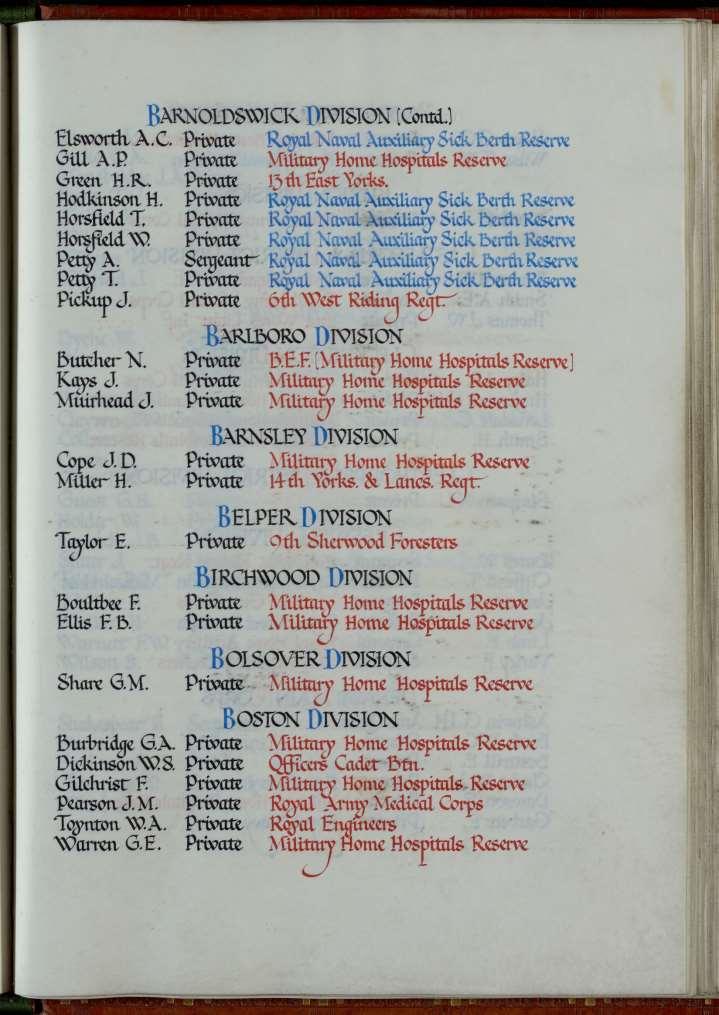 BARNOLDSWICK DIVISION (Contd.)
Elsworth A.C. Private Royal Naval Auxiliary Sick Berth Reserve
Gill A.P. Private Military Home Hospitals Reserve
Green H.R. Private 13th East Yorks.
Hodkinson H. Private Royal Naval Auxiliary Sick Berth Reserve
Horsfield T. Private Royal Naval Auxiliary Sick Berth Reserve
Horsfield W. Private Royal Naval Auxiliary Sick Berth Reserve
Petty A. Sergeant Royal Naval Auxiliary Sick Berth Reserve
Petty T. Private Royal Naval Auxiliary Sick Berth Reserve
Pickup J. Private 6th West Riding Regt.
BARLBORO DIVISION
Butcher N. Private B.E.F. (Military Home Hospitals Reserve)
Kays J. Private Military Home Hospitals Reserve
Muirhead J. Private Military Home Hospitals Reserve
BARNSLEY DIVISION
Cope J.D. Private Military Home Hospitals Reserve
Miller H. Private 14th Yorks. & Lancs. Regt.
BELPER DIVISION
Taylor E. Private 9th Sherwood Foresters
BIRCHWOOD DIVISION
Boultbee F. Private Military Home Hospitals Reserve
Ellis F.B. Private Military Home Hospitals Reserve
BOLSOVER DIVISION
Share G.M. Private Military Home Hospitals Reserve
BOSTON DIVISION
Burbridge G.A. Private Military Home Hospitals Reserve
Dickinson W.S. Private Officers Cadet Btn.
Gilchrist F. Private Military Home Hospitals Reserve
Pearson J.M. Private Royal Army Medical Corps
Toynton W.A. Private Royal Engineers
Warren G.E. Private Military Home Hospitals Reserve